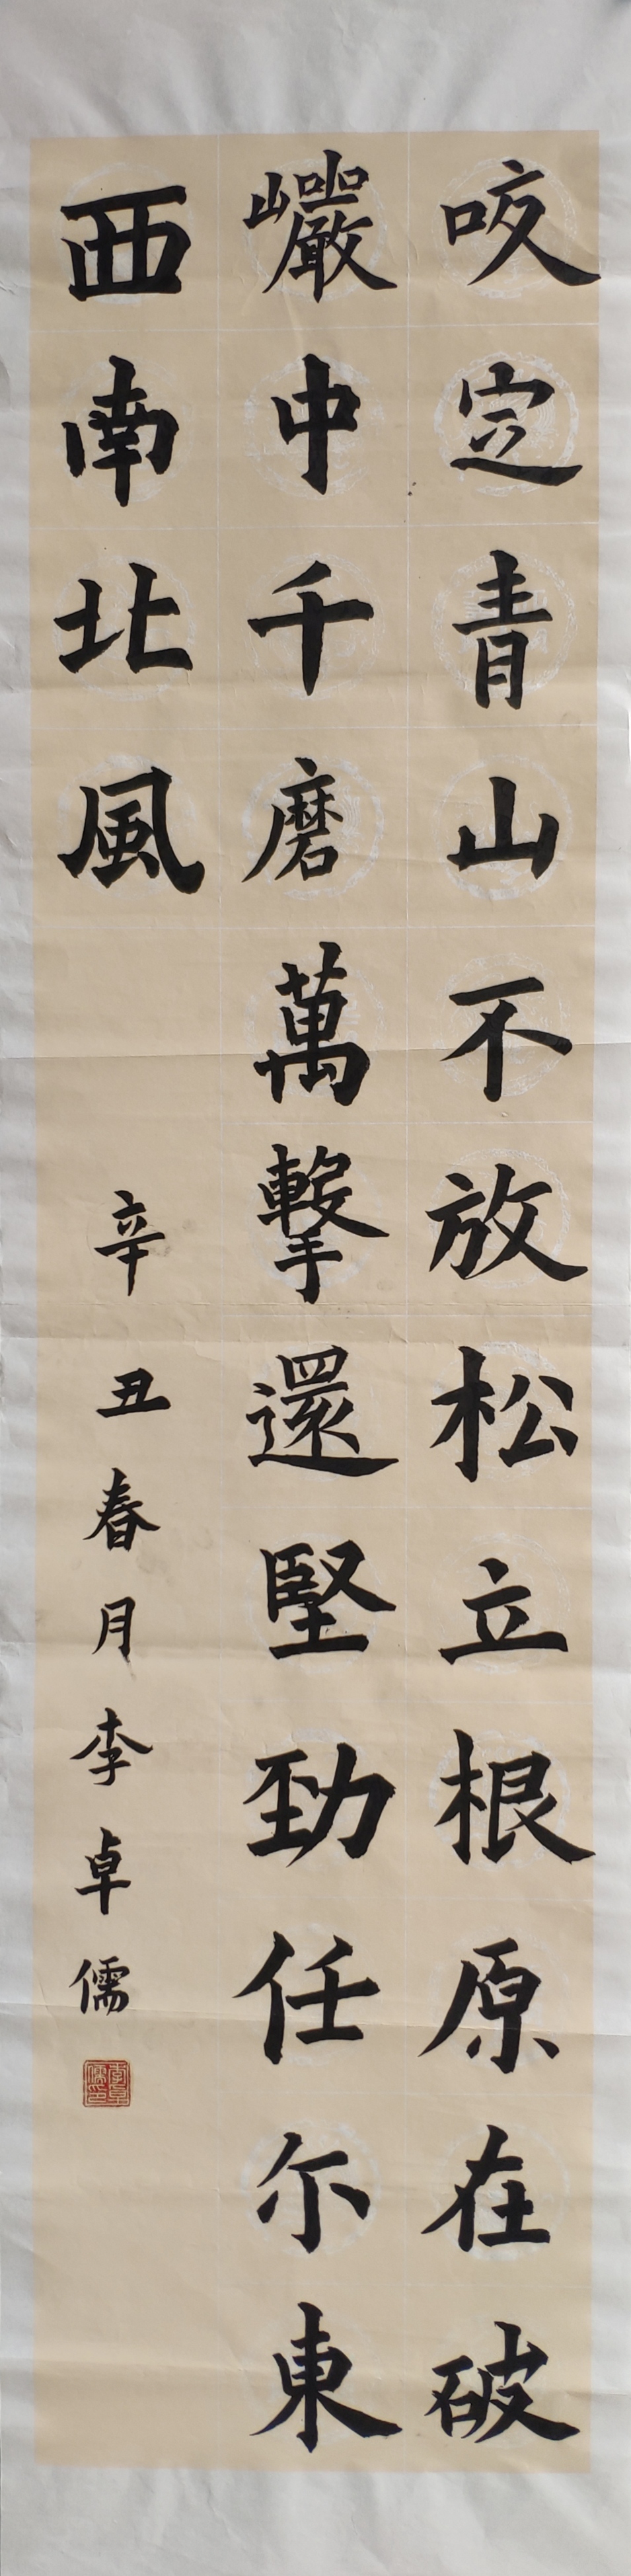 咬定青山不放松立根原在破
巗中千磨萬擊還堅勁任尔東
西南北風
辛丑春月李卓儒
李卓儒印